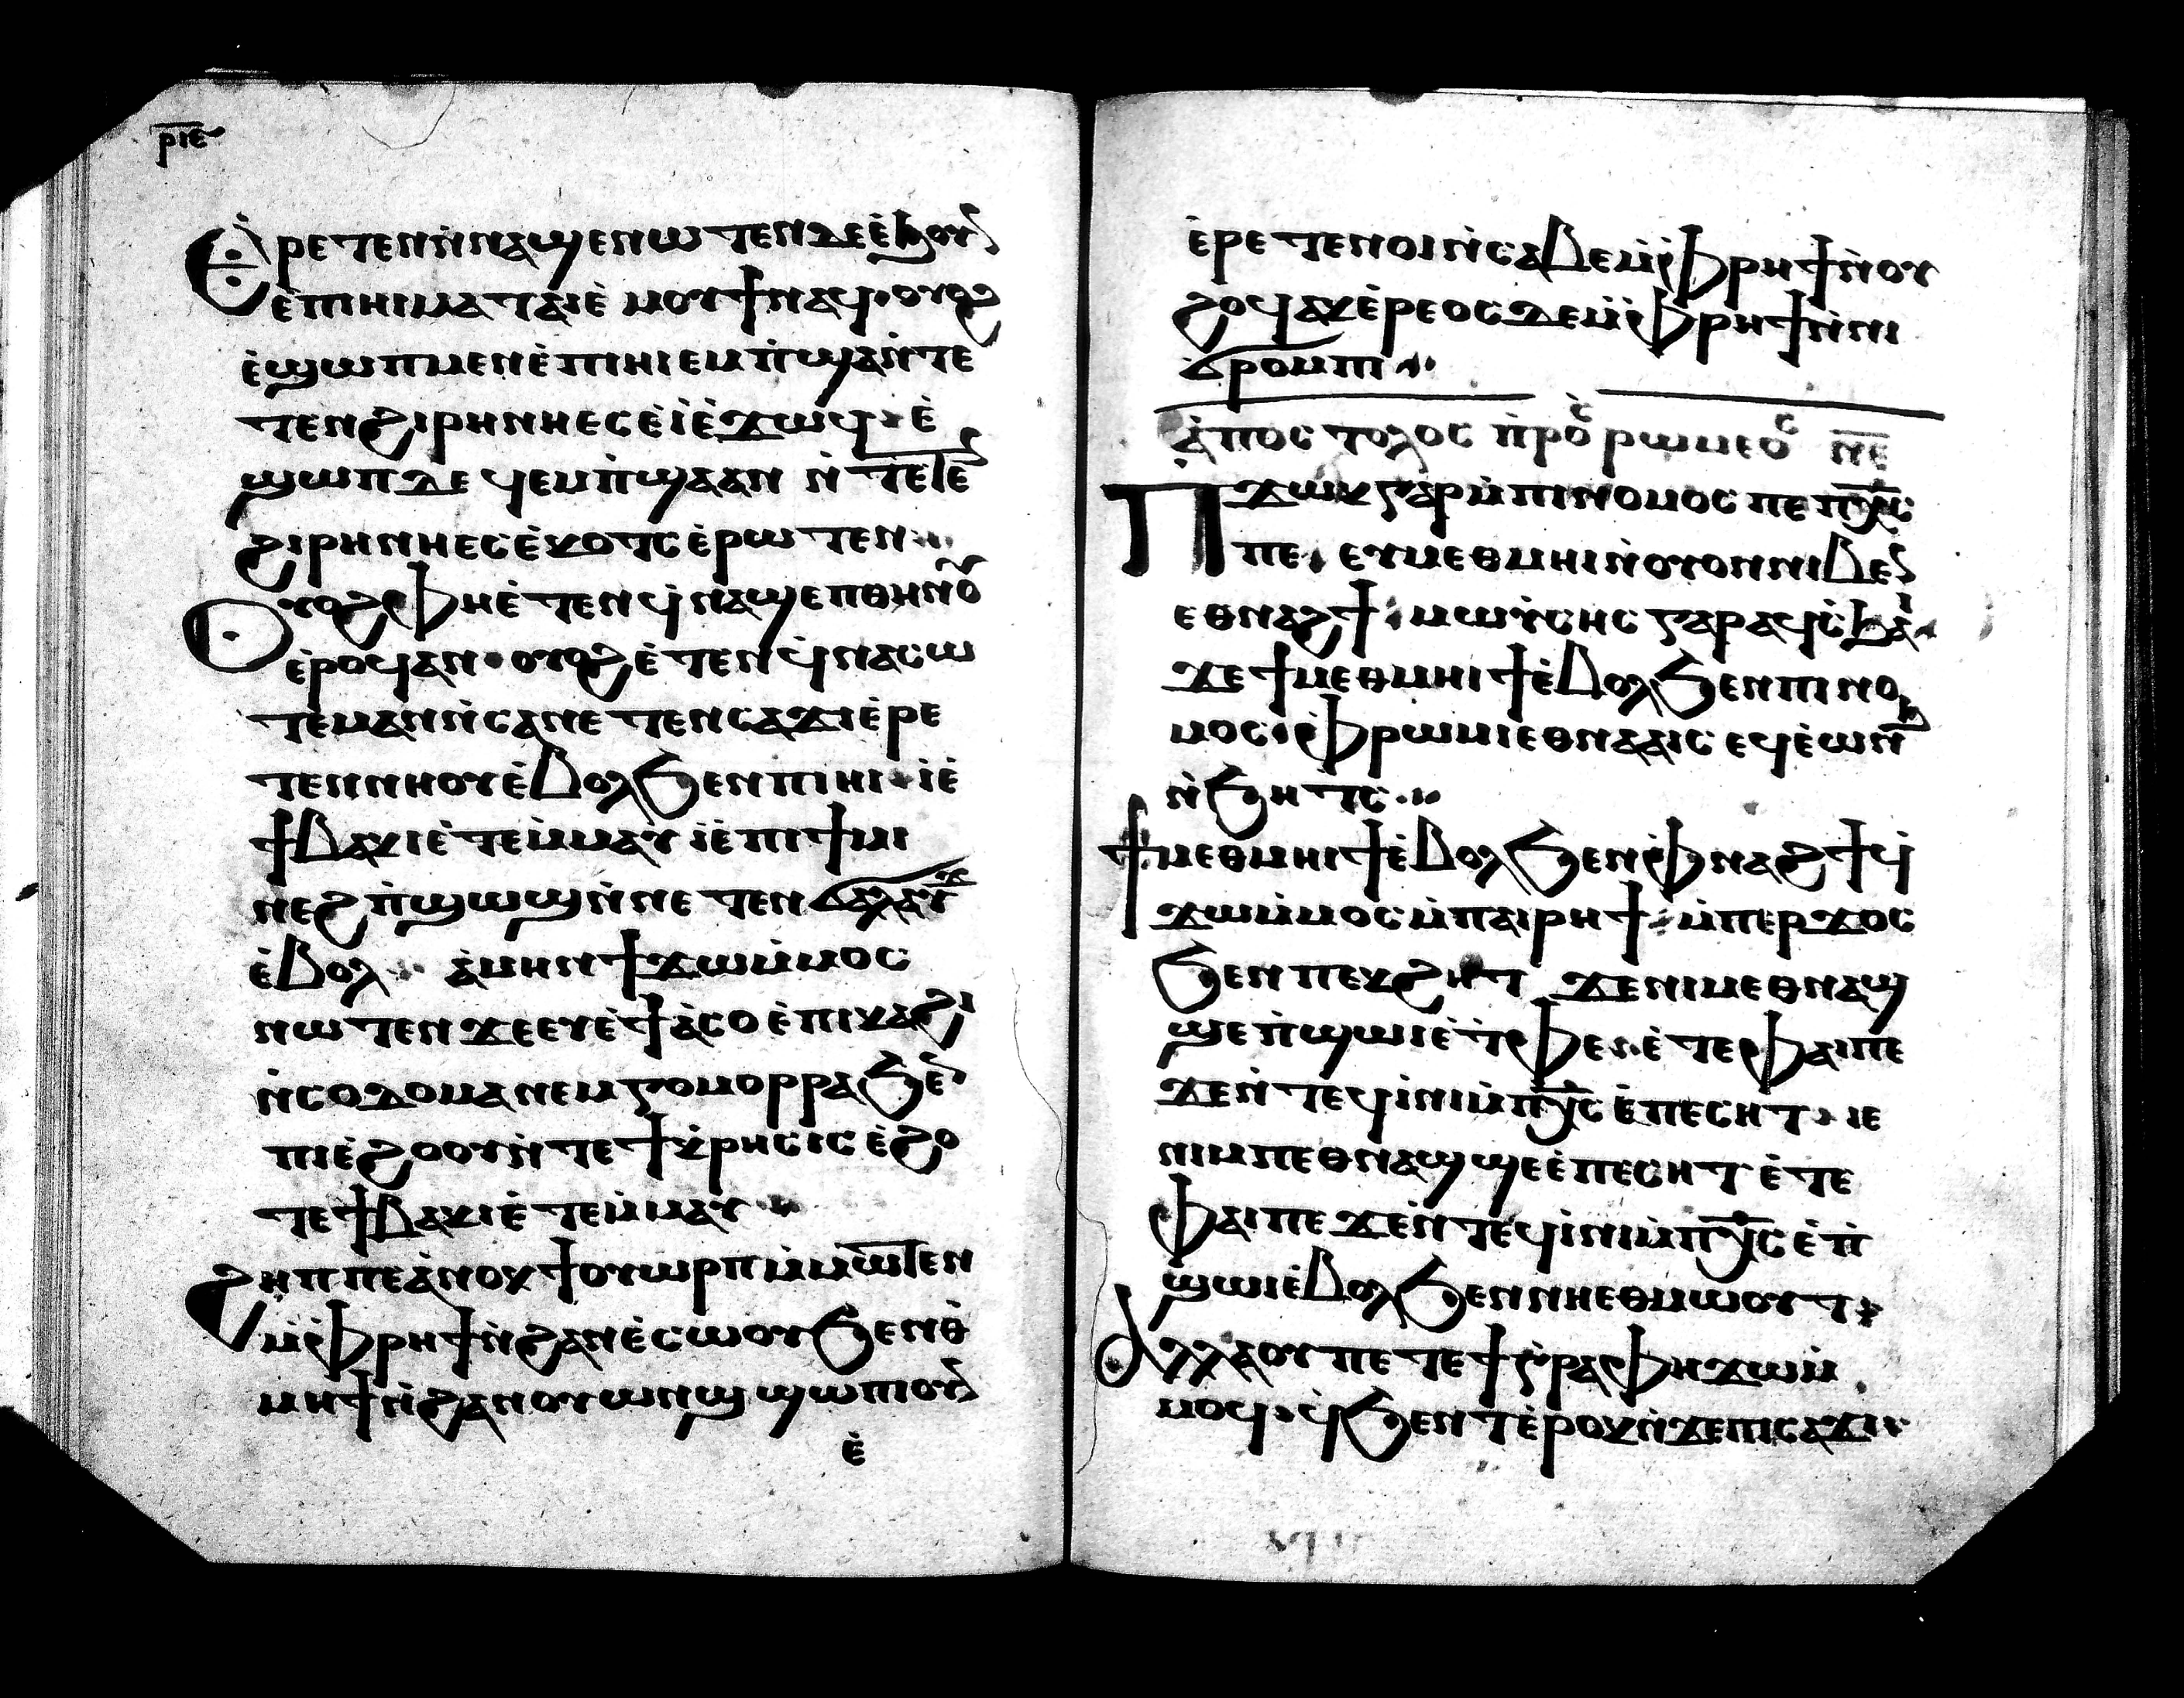 ⲣⲓⲉ
Ⲉⲣⲉⲧⲉⲛⲛ̀ⲛⲁϣⲉⲛⲱⲧⲉⲛⲇⲉⲉ̀ϧⲟⲩⲛ
ⲉ̀ⲡⲓⲏⲓⲙⲁⲧⲁⲓⲉ̀ ⲙⲟⲩϯⲛⲁϥ· ⲟⲩⲟϩ
ⲉ̀ϣⲱⲡⲙⲉⲛⲉ̀ⲡⲓⲏⲓⲉⲙⲡ̀ϣⲁⲛ̀ⲧⲉ
ⲧⲉⲛϩⲓⲣⲏⲛⲏⲉⲥⲉ̀ⲓ̀ⲉ̀ϫⲱϥ· ⲉ̀
ϣⲱⲡⲇⲉ ϥⲉⲙⲡ̀ϣⲁⲁⲛ ⲛ̀ⲧⲉⲧⲉⲛ
ϩⲓⲣⲏⲛⲏⲉⲥⲉ̀ⲕⲟⲧⲥⲉ̀ⲣⲱⲧⲉⲛ·
Ⲟⲩⲟϩⲫⲏⲉ̀ⲧⲉⲛϥ̀ⲛⲁϣⲉⲡⲑⲏⲛⲟ̅
ⲉ̀ⲣⲟϥⲁⲛ· ⲟⲩⲟϩⲉ̀ⲧⲉⲛϥ̀ⲛⲁⲥⲱ
ⲧⲉⲙⲁⲛⲛ̀ⲥⲁⲛⲉⲧⲉⲛⲥⲁϫⲓⲉ̀ⲣⲉ
ⲧⲉⲛⲛⲏⲟⲩⲉ̀ⲃⲟⲗϧⲉⲛⲡⲓⲏⲓ· ⲓⲉ̀
ϯⲃⲁⲕⲓⲉ̀ⲧⲉⲙ̀ⲙⲁⲩ ⲓⲉ̀ⲡⲓϯⲙⲓ
ⲛⲉϩⲡ̀ϣⲱϣⲛ̀ⲛⲉⲧⲉⲛϭⲁⲗⲁⲩϫ
ⲉ̀ⲃⲟⲗ· ⲁ̀ⲙⲏⲛϯϫⲱⲙ̀ⲙⲟⲥ
ⲛⲱⲧⲉⲛϫⲉⲉⲩⲉ̀ϯⲁ̀ⲥⲟⲉ̀ⲡⲓⲕⲁϩⲓ
ⲛ̀ⲥⲟⲇⲟⲙⲁⲛⲉⲙⲅⲟⲙⲟⲣⲣⲁϧⲉⲛ
ⲡⲓⲉ̀ϩⲟⲟⲩⲛ̀ⲧⲉϯⲕ̀ⲣⲏⲥⲓⲥⲉ̀ϩⲟ
ⲧⲉϯⲃⲁⲕⲓⲉ̀ⲧⲉⲙ̀ⲙⲁⲩ
Ϩⲏⲡⲡⲉⲁ̀ⲛⲟⲕϯⲟⲩⲱⲣⲡⲙ̀ⲙⲱⲧⲉⲛ
ⲙ̀ⲫ̀ⲣⲏϯⲛ̀ϩⲁⲛⲉ̀ⲥⲱⲟⲩϧⲉⲛⲑ̀
ⲙⲏϯⲛ̀ϩⲁⲛⲟⲩⲱⲛϣ ϣⲱⲡⲓⲟⲩⲛ
ⲉ̀
ⲉ̀ⲣⲉⲧⲉⲛⲟⲓⲛ̀ⲥⲁⲃⲉⲙ̀ⲫ̀ⲣⲏϯⲛ̀ⲟⲩ
ϩⲟϥⲁⲕⲉ̀ⲣⲉⲟⲥⲇⲉⲙ̀ⲫ̀ⲣⲏϯⲛ̀ⲛⲓ
ϭⲣⲟⲙⲡⲓ
ⲁ̀ⲡⲟⲥⲧⲟⲗⲟⲥ ⲡ̀ⲣⲟⲥ ⲣⲱⲙⲉⲟⲥ ⲛⲉ
Ⲡϫⲱⲕⲅⲁⲣⲙ̀ⲡⲓⲛⲟⲙⲟⲥⲡⲉⲡⲭ̅ⲥ̅
ⲡⲉ· ⲉⲩⲙⲉⲑⲙⲏⲓⲛ̀ⲟⲩⲟⲛⲛⲓⲃⲉⲛ
ⲉⲑⲛⲁϩϯ· ⲙⲱⲩ̀ⲥⲏⲥⲅⲁⲣⲁϥⲥ̀ϧⲁⲓ
ϫⲉϯⲙⲉⲑⲙⲏⲓϯⲉ̀ⲃⲟⲗϧⲉⲛⲡⲓⲛⲟ
ⲙⲟⲥ· ⲫ̀ⲣⲱⲙⲓⲉⲑⲛⲁⲁⲓⲥ ⲉϥⲉ̀ⲱⲛϧ
ⲛ̀ϧⲏⲧⲥ
Ϯⲙⲉⲑⲙⲏⲓϯⲉ̀ⲃⲟⲗϧⲉⲛⲫ̀ⲛⲁϩϯϥ̀
ϫⲱⲙ̀ⲙⲟⲥⲙ̀ⲡⲁⲓⲣⲏϯ· ⲙ̀ⲡⲉⲣϫⲟⲥ
ϧⲉⲛⲡⲉⲕϩⲏⲧ ϫⲉⲛⲓⲙⲉⲑⲛⲁϣ
ϣⲉⲡ̀ϣⲱⲓⲉ̀ⲧ̀ⲫⲉ· ⲉ̀ⲧⲉⲫⲁⲓⲡⲉ
ϫⲉⲛ̀ⲧⲉϥⲓ̀ⲛⲓⲙ̀ⲡⲭ̅ⲥ̅ⲉ̀ⲡⲉⲥⲏⲧ· ⲓⲉ
ⲛⲓⲙⲡⲉⲑⲛⲁϣϣⲉⲉ̀ⲡⲉⲥⲏⲧ ⲉ̀ⲧⲉ
ⲫⲁⲓⲡⲉϫⲉⲛ̀ⲧⲉϥⲓ̀ⲛⲓⲙ̀ⲡⲭ̅ⲥ̅ⲉ̀ⲡ̀
ϣⲱⲓⲉ̀ⲃⲟⲗϧⲉⲛⲛⲏⲉⲑⲙⲱⲟⲩⲧ·
Ⲁⲗⲗⲁⲟⲩⲡⲉⲧⲉϯⲅ̀ⲣⲁⲫⲏϫⲱⲙ̀
ⲙⲟϥ· ϥ̀ϧⲉⲛⲧⲉ̀ⲣⲟⲕⲛ̀ϫⲉⲡⲓⲥⲁϫⲓ